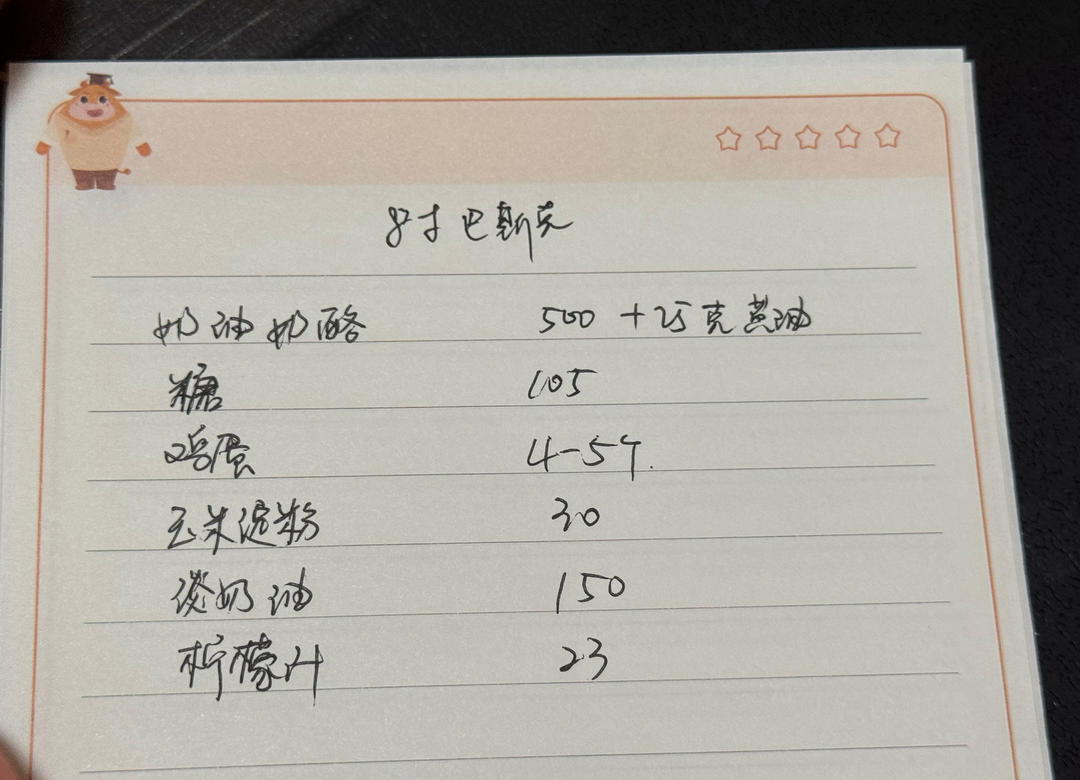 8寸巴斯克
奶油奶酪 500 +25克黄油
糖 105
鸡蛋 4-5个.
玉米淀粉 30
淡奶油 150
柠檬汁 23